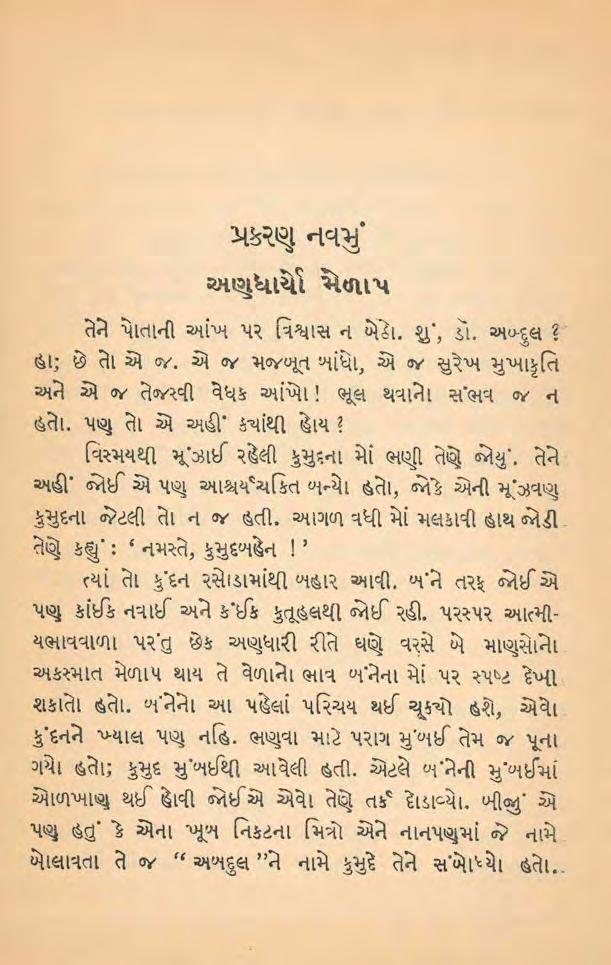 પ્રકરણ નવમું
અણધાર્યો મેળાપ
તેને પોતાની આંખ પર વિશ્વાસ ન બેઠો. શું, ડૉ. અબ્દુલ ?
હા; છે તો એ જ. એ જ મજબૂત બાંધો, એ જ સુરેખ મુખાકૃતિ
અને એ જ તેજસ્વી વેધક આંખો! ભૂલ થવાનો સંભવ જ ન
હતો. પણ તો એ અહીં ક્યાંથી હોય ?
વિસ્મયથી મૂંઝાઈ રહેલી કુમુદના મોં ભણી તેણે જોયું. તેને
અહીં જોઈ એ પણ આશ્ચર્યચકિત બન્યો હતો, જોકે એની મૂંઝવણ
કુમુદના જેટલી તો ન જ હતી. આગળ વધી મોં મલકાવી હાથ જોડી
તેણે કહ્યું : ‘ નમસ્તે, કુમુદબહેન !’
ત્યાં તો કુંદન રસોડામાંથી બહાર આવી. બંને તરફ જોઈ એ
પણ કાંઈક નવાઈ અને કંઈક કુતૂહલથી જોઈ રહી. પરસ્પર આત્મી-
યભાવવાળા પરંતુ છેક અણધારી રીતે ઘણે વરસે બે માણસોનો
અકસ્માત મેળાપ થાય તે વેળાનો ભાવ બંનેના મોં પર સ્પષ્ટ દેખી
શકાતો હતો. બંનેનો આ પહેલાં પરિચય થઈ ચૂક્યો હશે, એવો
કુંદનને ખ્યાલ પણ નહિ. ભણવા માટે પરાગ મુંબઈ તેમ જ પૂના
ગયો હતો; કુમુદ મુંબઈથી આવેલી હતી. એટલે બંનેની મુંબઈમાં
ઓળખાણ થઈ હોવી જોઈએ એવો તેણે તર્ક દોડાવ્યો. બીજું એ
પણ હતું કે એના ખૂબ નિકટના મિત્રો એને નાનપણમાં જે નામે
બોલાવતા તે જ “ અબદુલ ”ને નામે કુમુદે તેને સંબોધ્યો હતો.